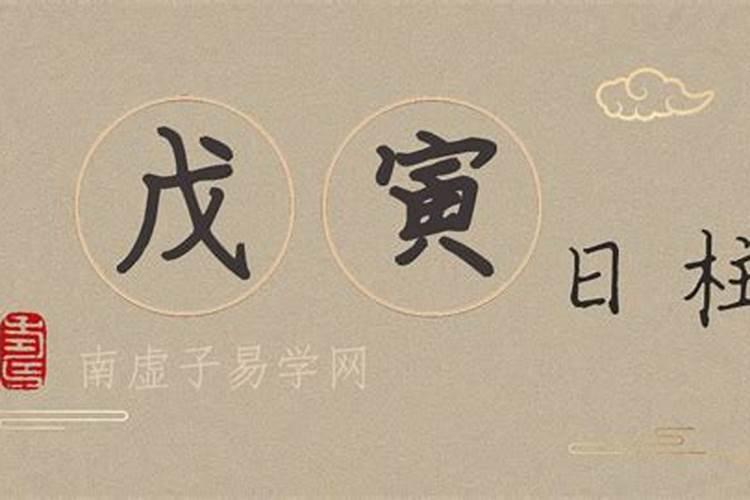 戊寅日柱
南虚子易学网